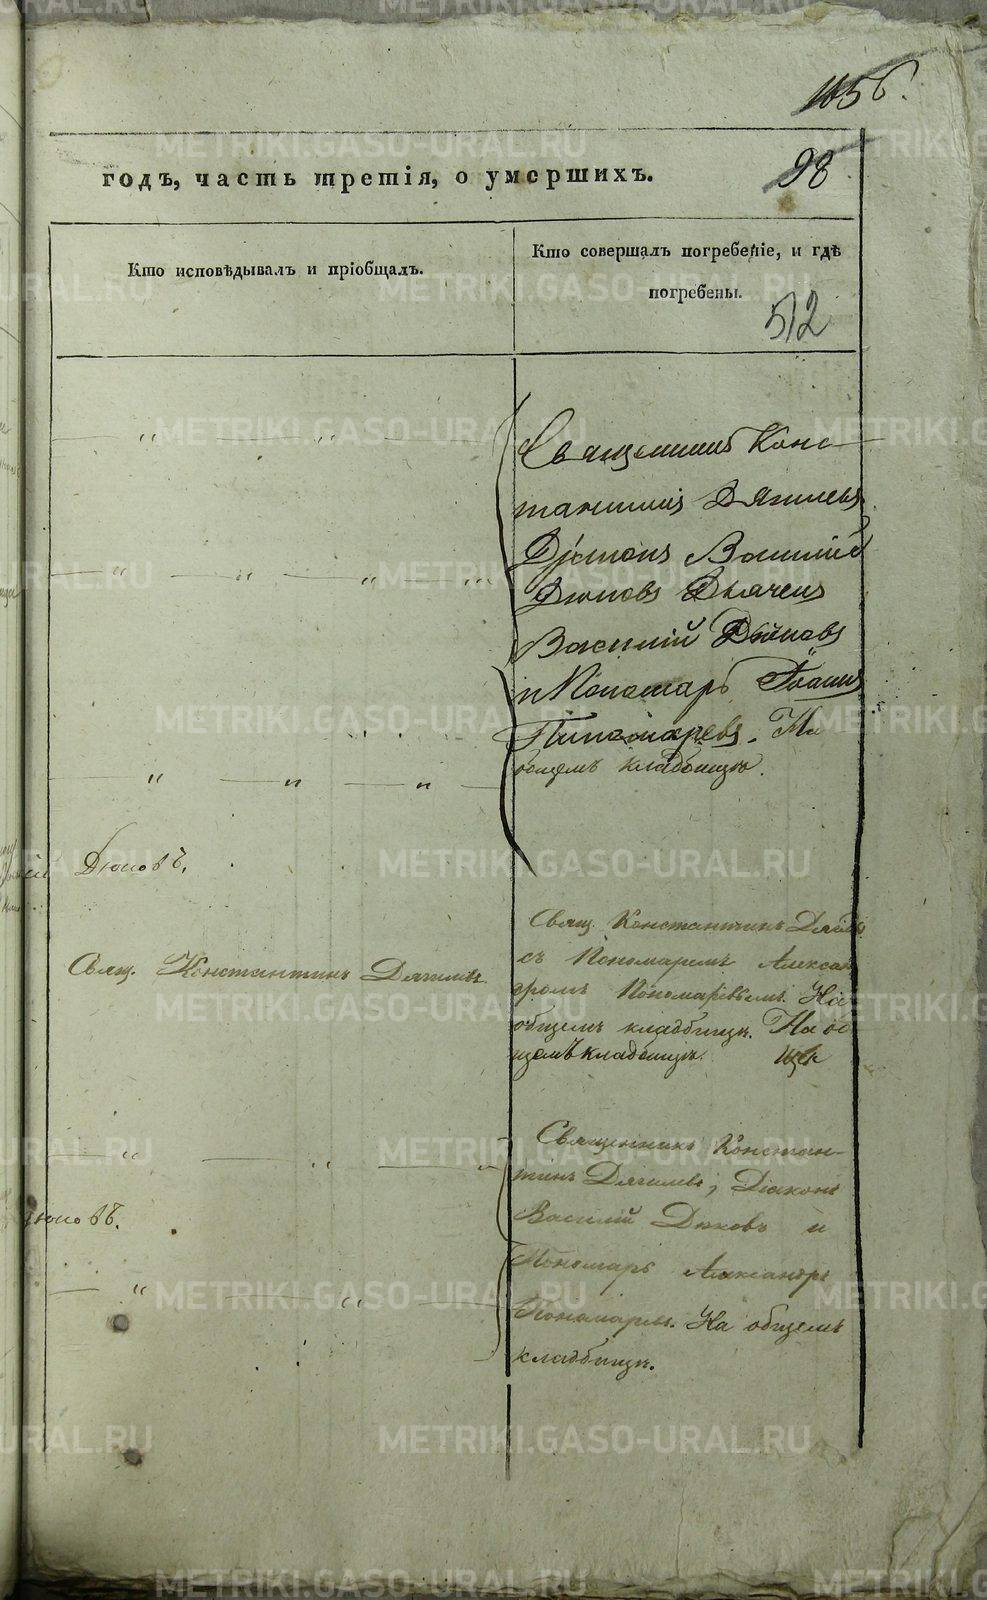 1056.
годъ, часть третія, о умершихъ.
98
Кто исповѣдывалъ и пріобщалъ.
Кто совершалъ погребеніе, и гдѣ
погребены.
512
Священникъ Конс-
тантинъ Дягилевъ
Діаконъ Василій
Дюковъ Дьячекъ
Василій
и Пономарь Іоаннъ
Пономаревъ. На
общемъ кладбищѣ.
Дюковъ.
Свящ. Константинъ Дягилевъ
съ Пономаремъ Алексан
дромъ Пономаревымъ. На
общемъ кладбищѣ. На об
щемъ кладбищѣ. щем
Свящ. Константинъ Дягилевъ.
Священникъ Констан-
тинъ Дягилевъ; Діаконъ
Василій Дюковъ и
Пономарь Александръ
Пономаревъ. На общемъ
кладбищѣ.
Дюковъ.
METRIKI.GASO-URAL.RU